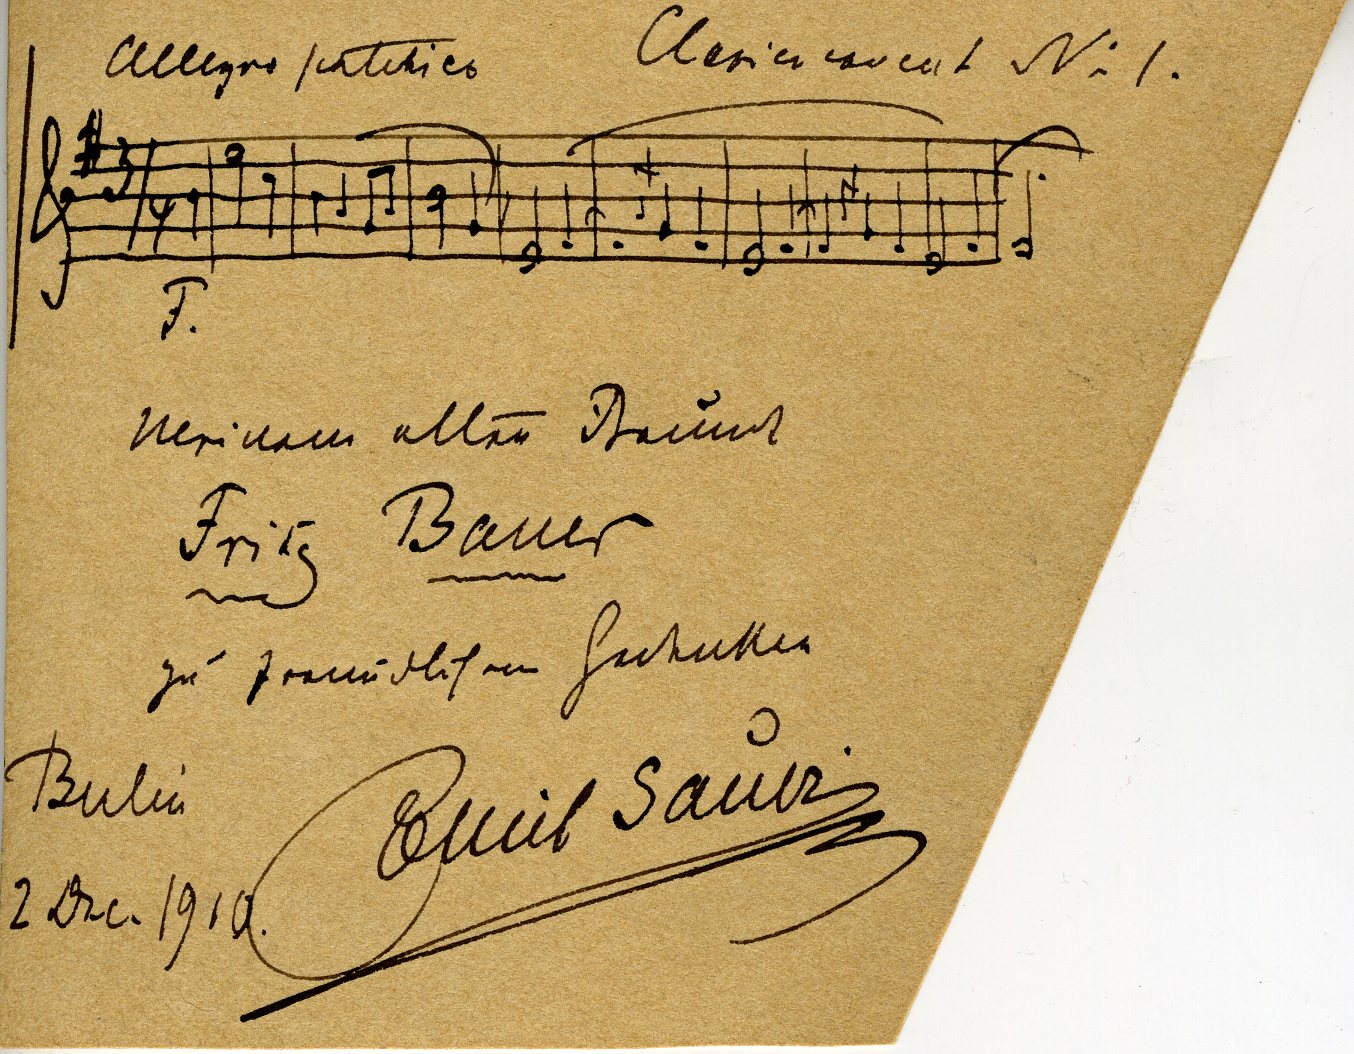 Allegro patetico Clavierconcert No 1.
3/4
F.
Meinem alten Freund
Fritz Bauer
zu freundlichem Gedenken
Berlin
2 Dec. 1910.
Emil Sauer